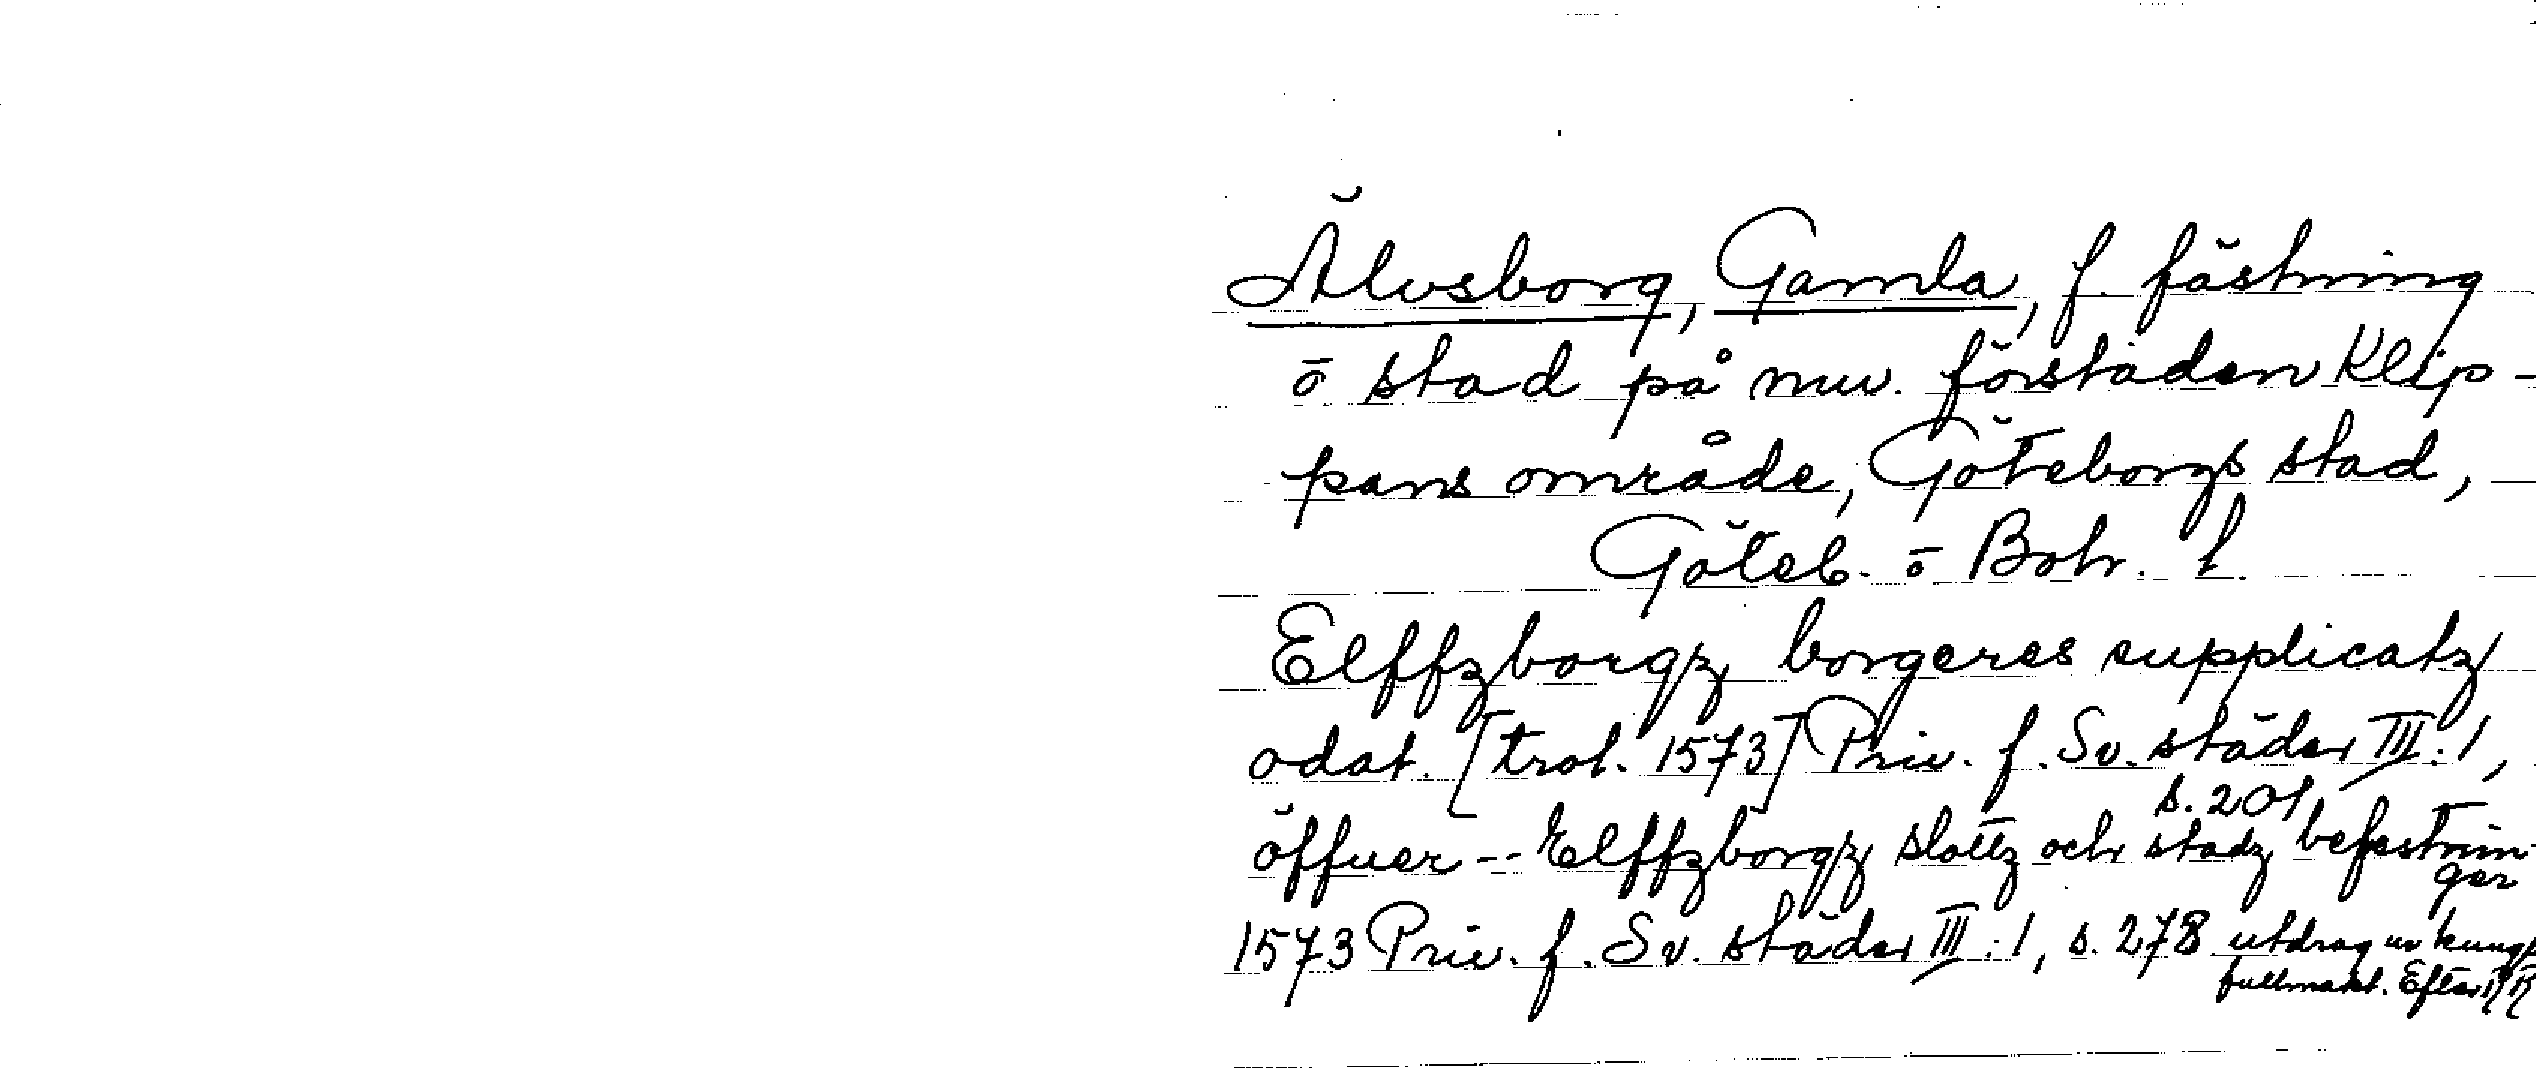 Älvsborg, Gamla, f. fästning
o stad på nuv. förstaden Klip-
pans område, Göteborgs stad,
Göteb. o Boh. l.
Elffzborgz borgeres supplicatz
odat. [trol. 1573] Priv. f. Sv. städer III:1,
s. 201
öffuer -- Elffzborgz slottz och stadz befestnin-
ger
1573 Priv. f. Sv. städer III:1, s. 278 utdrag ur kungl
fullmakt. Efter RR